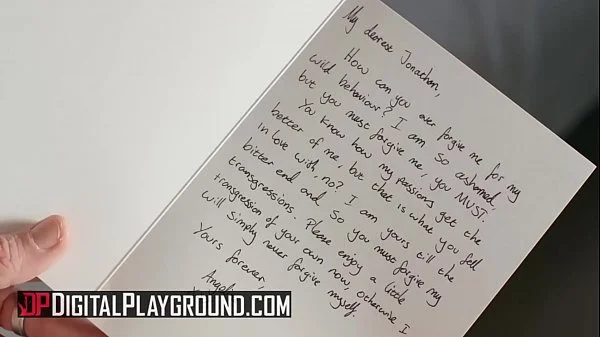 My dearest Jonathan,
How can you ever forgive me for my
wild behaviour? I am so ashamed,
but you must forgive me, you MUST.
You know how my passions get the
better of me, but that is what you fell
in love with, no? I am yours till the
bitter end and so you must forgive my
transgressions. Please enjoy a little
transgression of your own now, otherwise I
will simply never forgive myself.
Yours forever,
DP DIGITALPLAYGROUND.COM